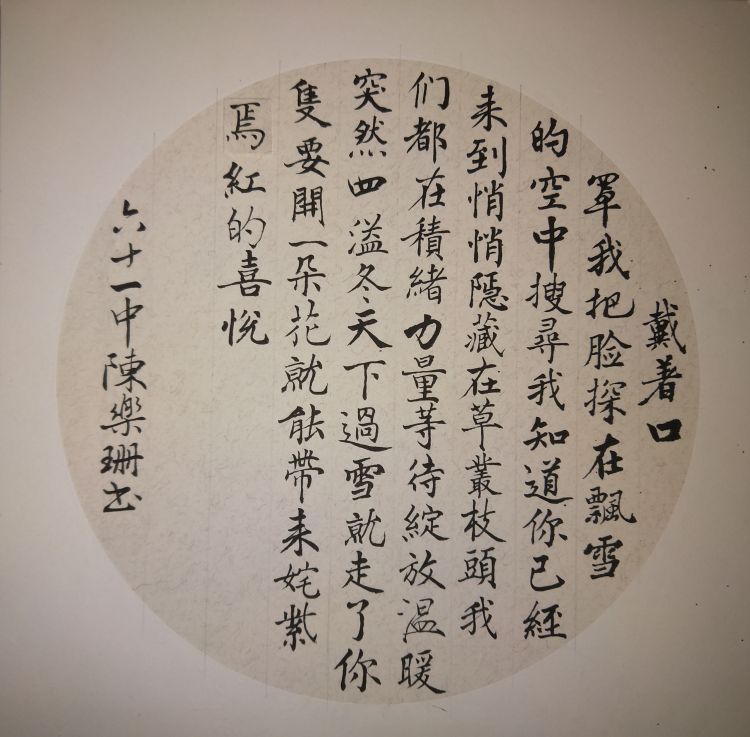 戴着口
罩我把脸探在飄雪
的空中搜尋我知道你已經
来到悄悄隱藏在草叢枝頭我
们都在積緒力量等待綻放温暖
突然四溢冬天下過雪就走了你
隻要開一朵花就能帶来姹紫
焉紅的喜悅
六十一中陳樂珊书